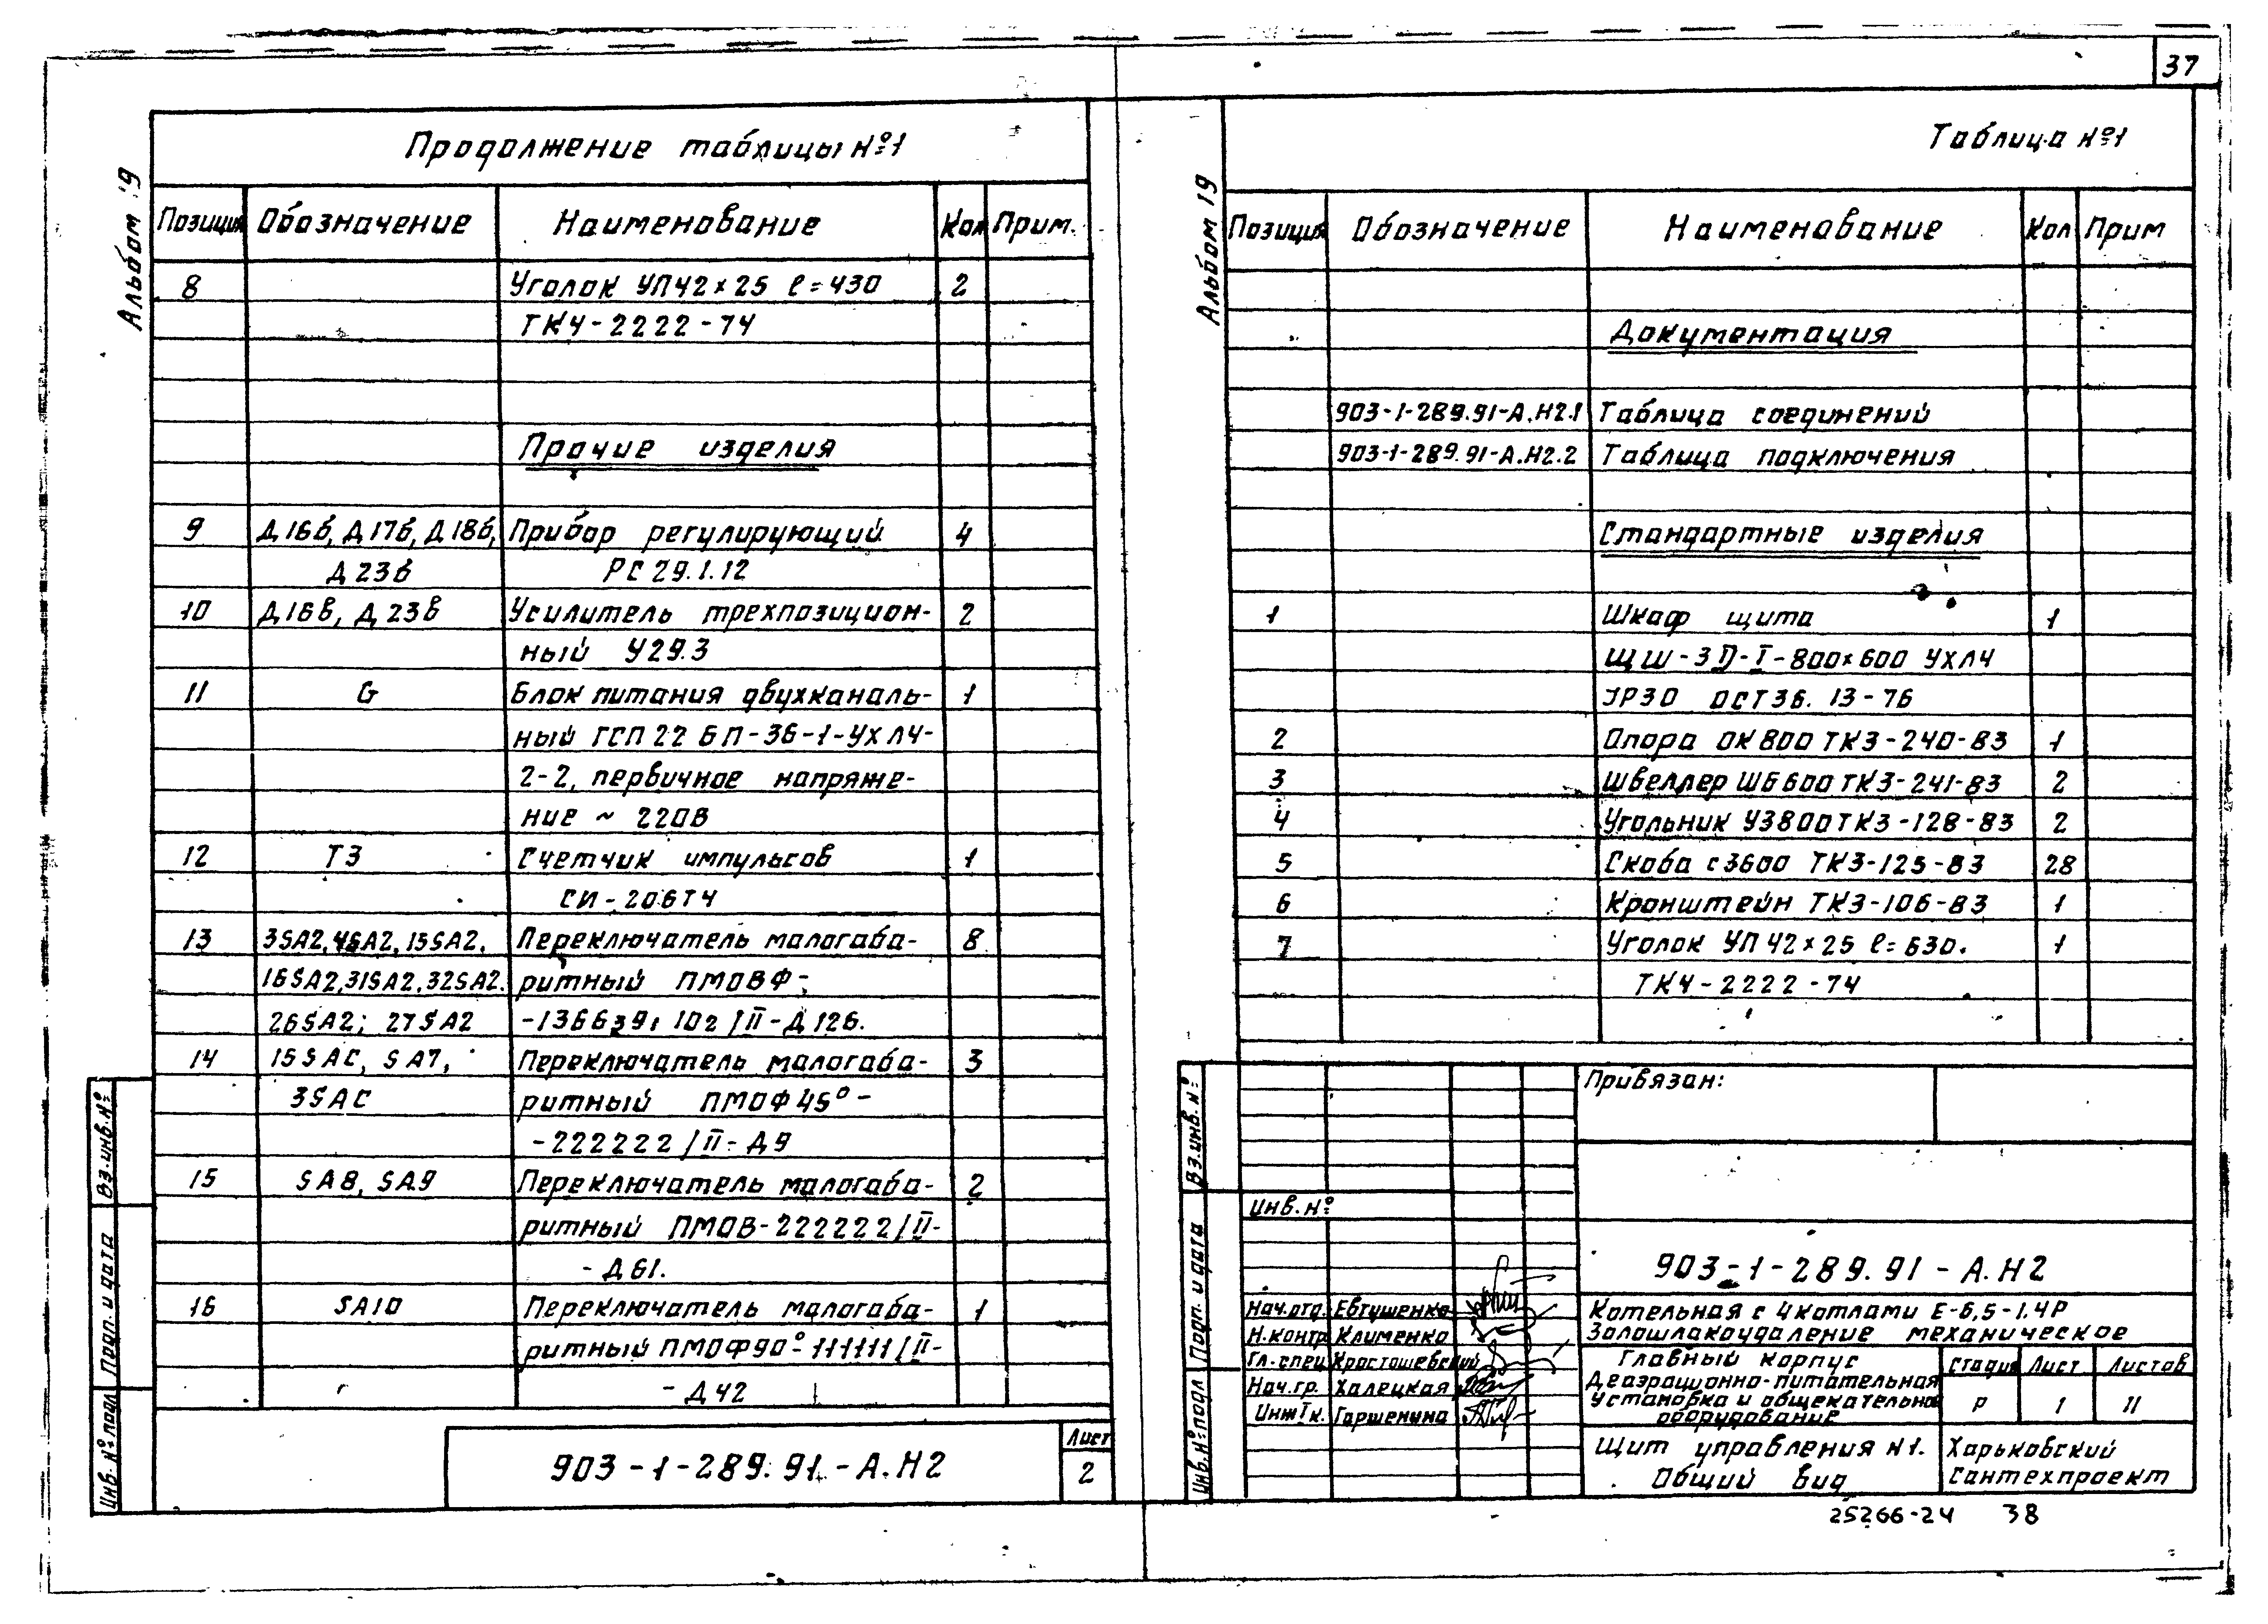 37
Альбом 19
Продолжение таблицы №1
Позиция Обозначение Наименование Кол Прим.
8 Уголок УП42×25 ℓ=430 2
ТК4-2222-74
Прочие изделия
9 Д16б, Д17б, Д18б, Прибор регулирующий 4
Д23б РС29.1.12
10 Д16в, Д23в Усилитель трехпозицион- 2
ный У29.3
11 G Блок питания двухканаль- 1
ный ГСП 22 БП-36-1-УХЛ4-
2-2, первичное напряже-
ние ~ 220В
12 Т3 Счетчик импульсов 1
СИ-206Т4
13 3SA2, 4SA2, 15SA2, Переключатель малогаба- 8
16SA2, 31SA2, 32SA2. ритный ПМОВФ-
26SA2; 27SA2 /II-Д126.
14 15SAC, SA7, Переключатель малогаба- 3
3SAC ритный ПМОФ45°-
-222222/II-Д9
15 SA8, SA9 Переключатель малогаба- 2
ритный ПМОВ-222222/II-
-Д61.
16 SA10 Переключатель малогаба- 1
ритный ПМОФ90°-111111/II-
-Д42
903-1-289.91-А.Н2
Лист
2
Инв.№подл Подп. и дата Вз.инв.№
Альбом 19
Таблица №1
Позиция Обозначение Наименование Кол Прим
Документация
903-1-289.91-А.Н2.1 Таблица соединений
903-1-289.91-А.Н2.2 Таблица подключения
Стандартные изделия
1 Шкаф щита 1
-I-800×600 УХЛ4
IP30 ОСТ36.13-76
2 Опора ОК800 ТК3-240-83 1
3 Швеллер ШБ600 ТК3-241-83 2
4 Угольник У3800 ТК3-128-83 2
5 Скоба с3600 ТК3-125-83 28
6 Кронштейн ТК3-106-83 1
7 Уголок УП42×25 ℓ=630. 1
ТК4-2222-74
Привязан:
Инв.№
903-1-289.91-А.Н2
Нач.отд. Евтушенко
Н.контр Клименко
Гл.спец
Нач.гр. Халецкая
Гаршенина
Котельная с 4котлами Е-6,5-1.4Р
Золошлакоудаление механическое
Главный корпус
Деаэрационно-питательная
установка и общекательное
оборудование
Стадия Лист Листов
Р 1 11
Щит управления №1.
Общий вид
Харьковский
Сантехпроект
Инв.№подл Подп. и дата Вз.инв.№
25266-24 38